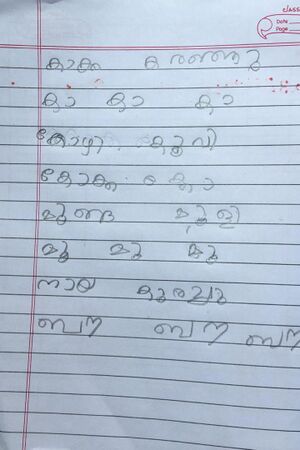 CLASS
Date
Page
കാക്ക കരഞ്ഞു
കാ കാ കാ
കോഴി കൂവി
മൂങ്ങ മൂളി
മൂ മൂ മൂ
നായ കുരച്ചു
ബൗ ബൗ ബൗ